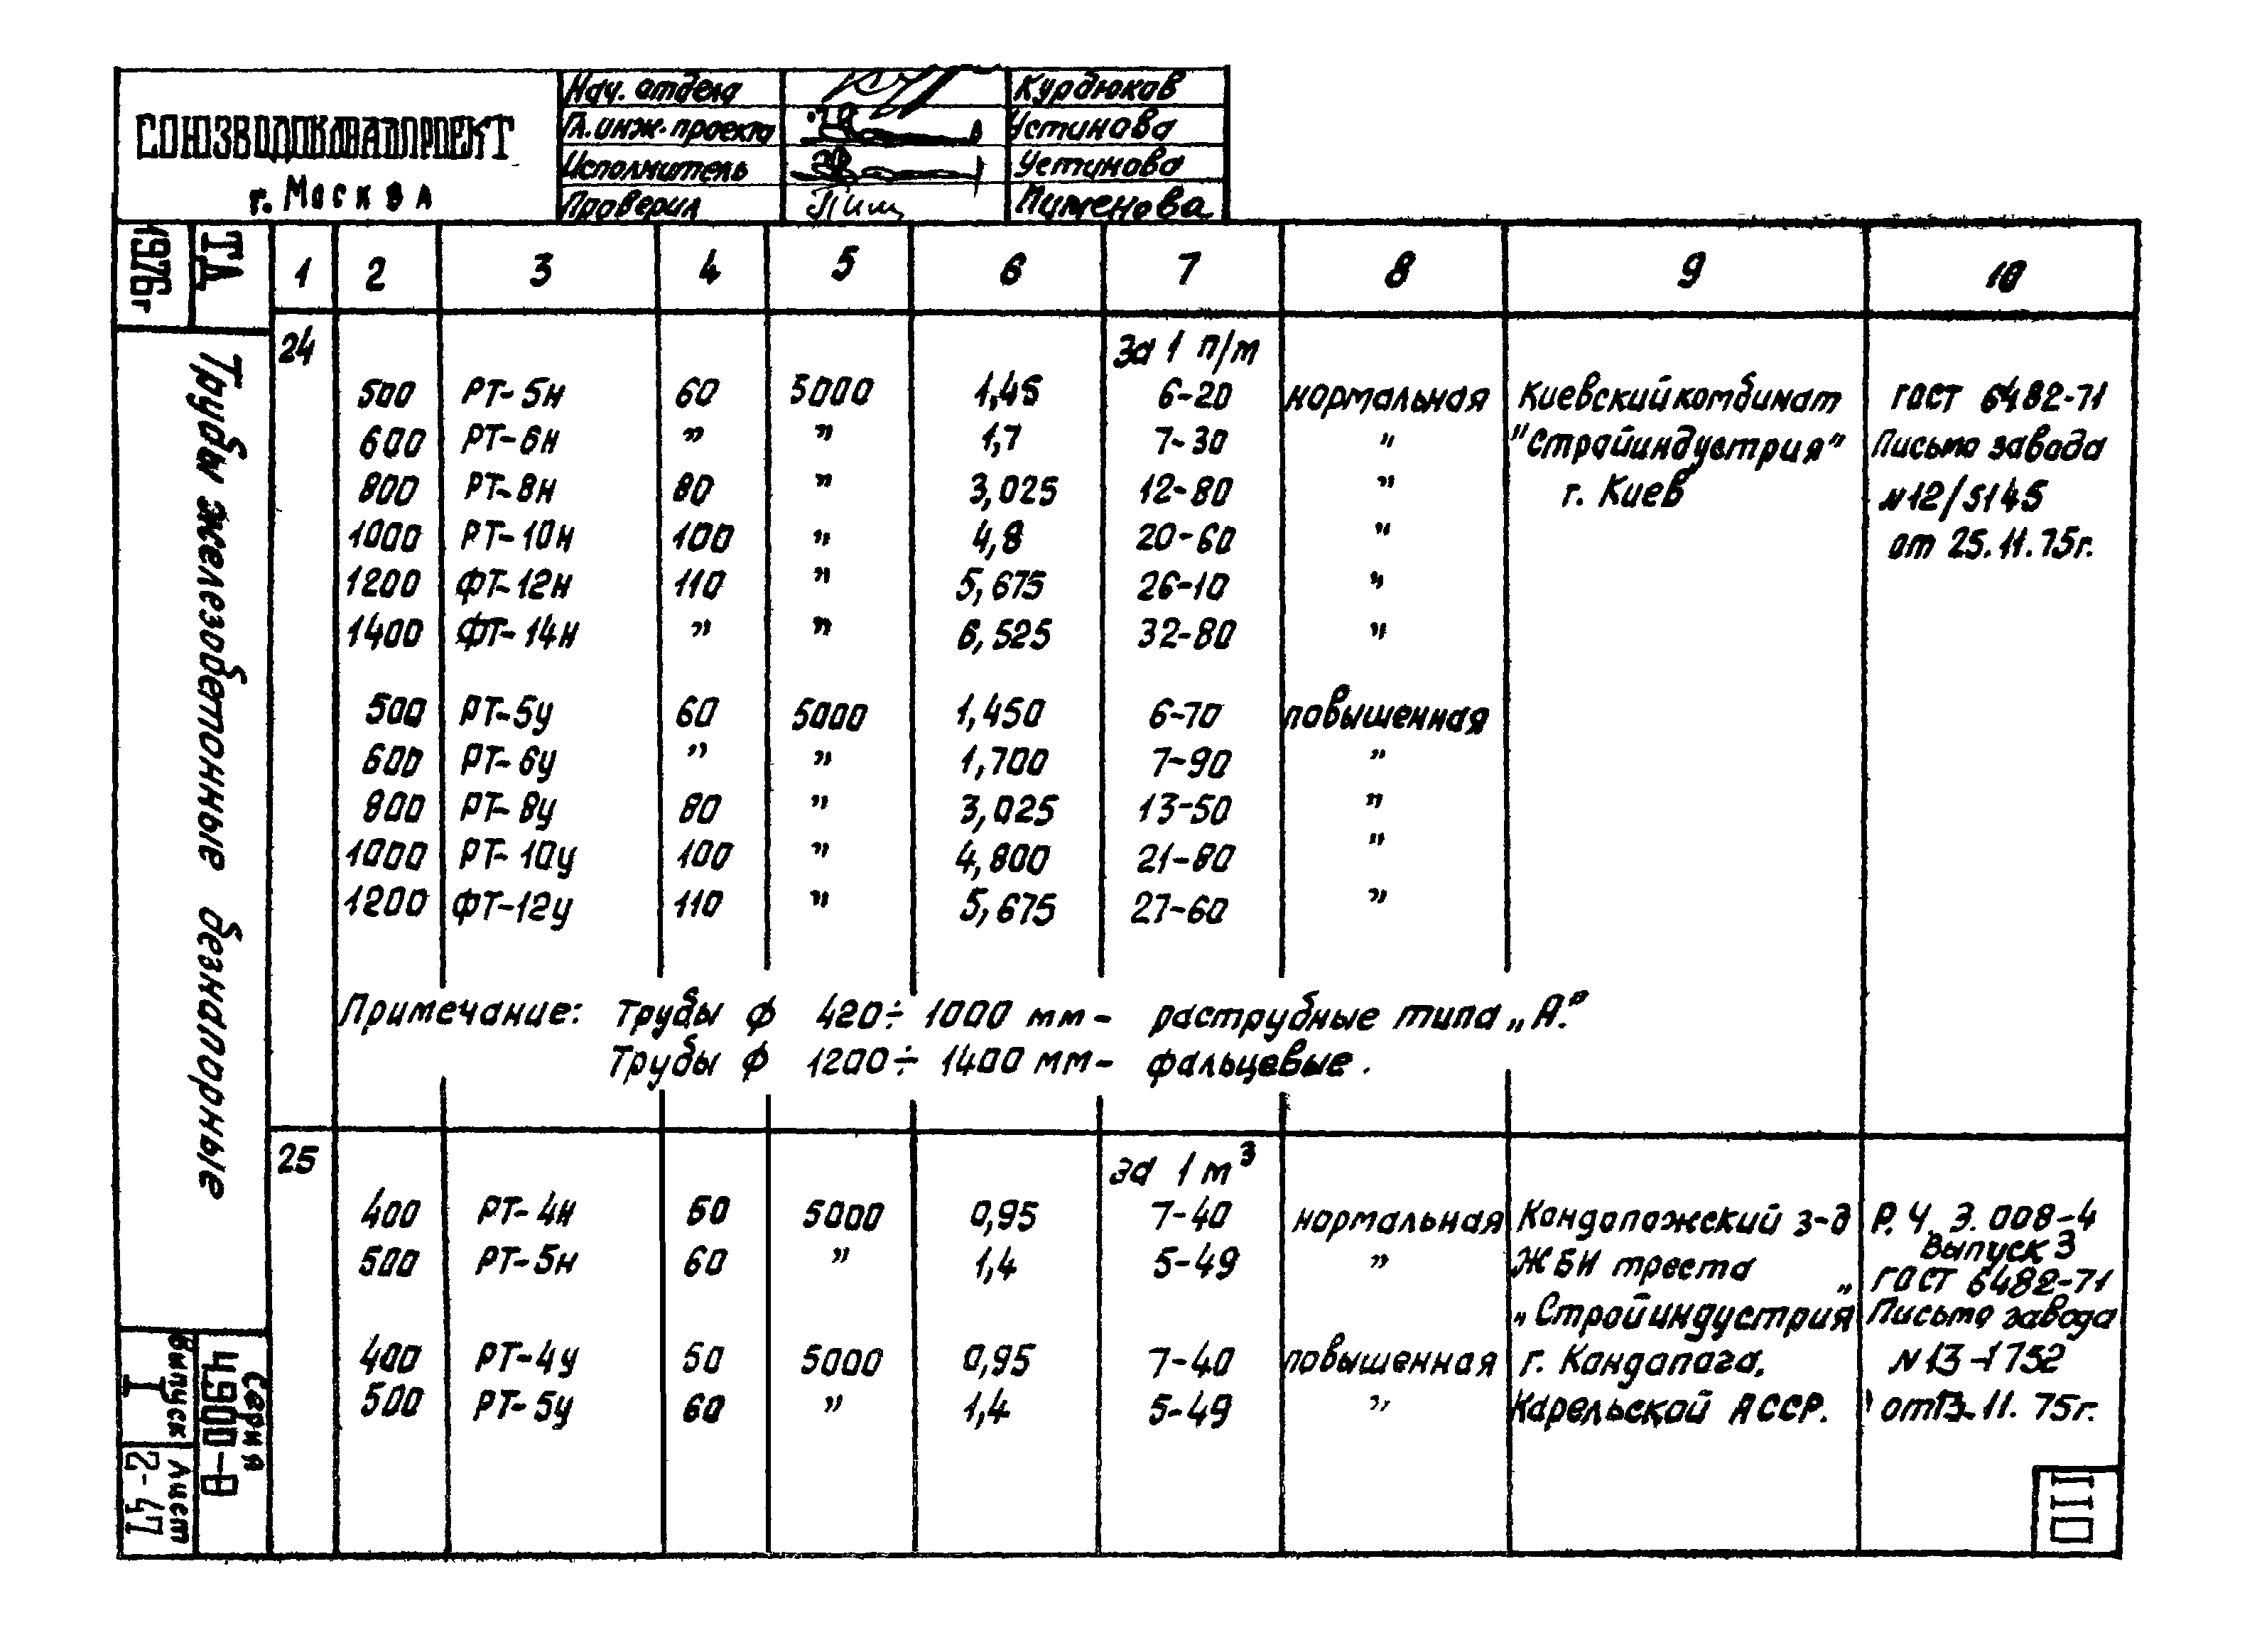 СОЮЗВОДОКАНАЛПРОЕКТ
г. Москва
Нач. отдела Курдюков
Гл. инж. проекта Устинова
Исполнитель Устинова
Проверил Пим Пименова
1976г
ТД
Трубы железобетонные безнапорные
Серия
4.900-8
Выпуск
I
Лист
2-47
1 2 3 4 5 6 7 8 9 10
24 за 1 п/м
500 РТ-5н 60 5000 1,45 6-20 нормальная Киевский комбинат ГОСТ 6482-71
600 РТ-6н " " 1,7 7-30 " "Стройиндустрия" Письмо завода
800 РТ-8н 80 " 3,025 12-80 " г. Киев №12/5145
1000 РТ-10н 100 " 4,8 20-60 " от 25.11.75г.
1200 ФТ-12н 110 " 5,675 26-10 "
1400 ФТ-14н " " 6,525 32-80 "
500 РТ-5у 60 5000 1,450 6-70 повышенная
600 РТ-6у " " 1,700 7-90 "
800 РТ-8у 80 " 3,025 13-50 "
1000 РТ-10у 100 " 4,800 21-80 "
1200 ФТ-12у 110 " 5,675 27-60 "
Примечание: Трубы ф 420÷1000 мм - раструбные типа „А."
Трубы ф 1200÷1400 мм - фальцевые.
25 за 1 м³
400 РТ-4н 50 5000 0,95 7-40 нормальная Кондопожский з-д Р.Ч. 3.008-4
Выпуск 3
500 РТ-5н 60 " 1,4 5-49 " ЖБИ треста ГОСТ 6482-71
„Стройиндустрия" Письмо завода
400 РТ-4у 50 5000 0,95 7-40 повышенная г. Кандапага, №13-1752
500 РТ-5у 60 " 1,4 5-49 " Карельской АССР. от 13.11.75г.
110